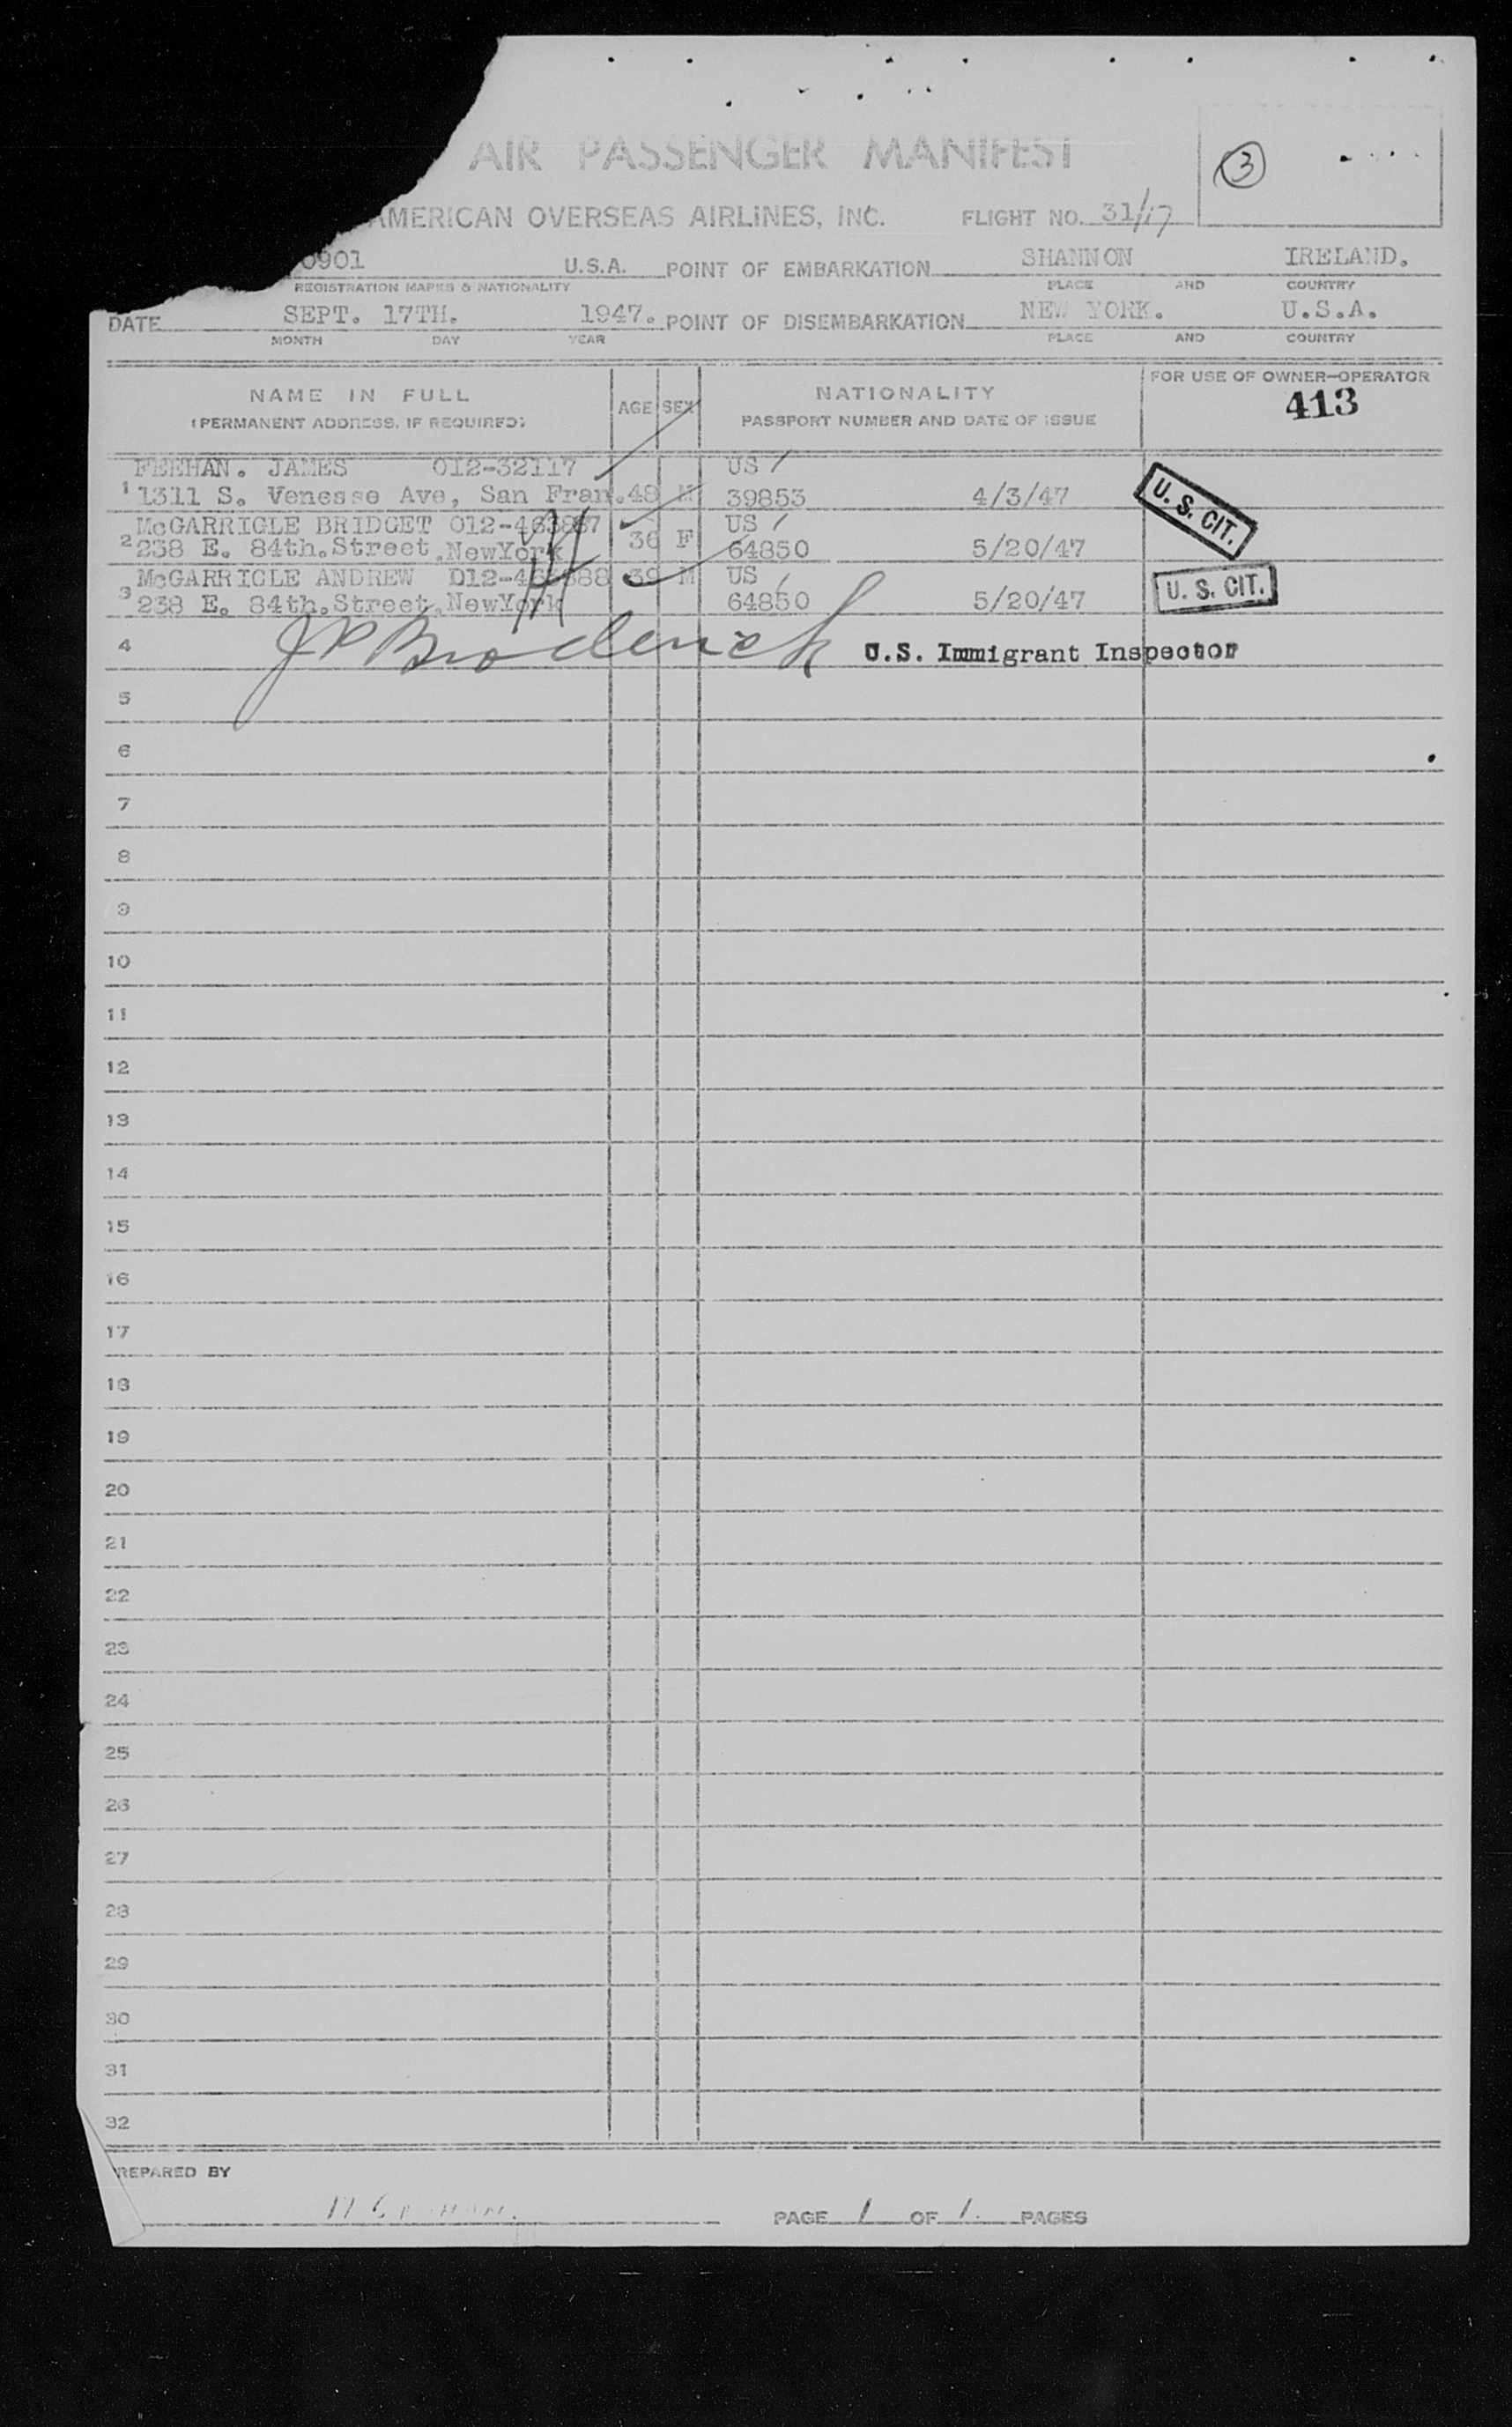 AIR PASSENGER MANIFEST
3
AMERICAN OVERSEAS AIRLINES, INC. FLIGHT NO. 31/17
0901 U.S.A. POINT OF EMBARKATION SHANNON IRELAND.
REGISTRATION MARKS & NATIONALITY PLACE AND COUNTRY
DATE SEPT. 17TH. 1947. POINT OF DISEMBARKATION NEW YORK. U.S.A.
MONTH DAY YEAR PLACE AND COUNTRY
NAME IN FULL AGE SEX NATIONALITY FOR USE OF OWNER-OPERATOR
(PERMANENT ADDRESS, IF REQUIRED) PASSPORT NUMBER AND DATE OF ISSUE 413
FEEHAN. JAMES 012-32117 US
1 1311 S. Venesse Ave, San Fran. 48 M 39853 4/3/47 U.S. CIT.
McGARRIGLE BRIDGET US
2 238 E. 84th.Street,NewYork 36 F 64850 5/20/47
McGARRIGLE ANDREW 39 M US
3 238 E. 84th.Street,NewYork 64850 5/20/47 U.S. CIT.
4 J P Broderick U.S. Immigrant Inspector
5
6
7
8
9
10
11
12
13
14
15
16
17
18
19
20
21
22
23
24
25
26
27
28
29
30
31
32
REPARED BY
PAGE 1 OF 1. PAGES